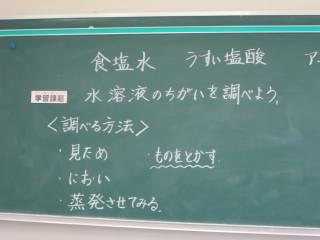 食塩水 うすい塩酸 ア
学習課題 水溶液のちがいを調べよう。
<調べる方法>
・見ため ・ものをとかす
・におい
・蒸発させてみる。